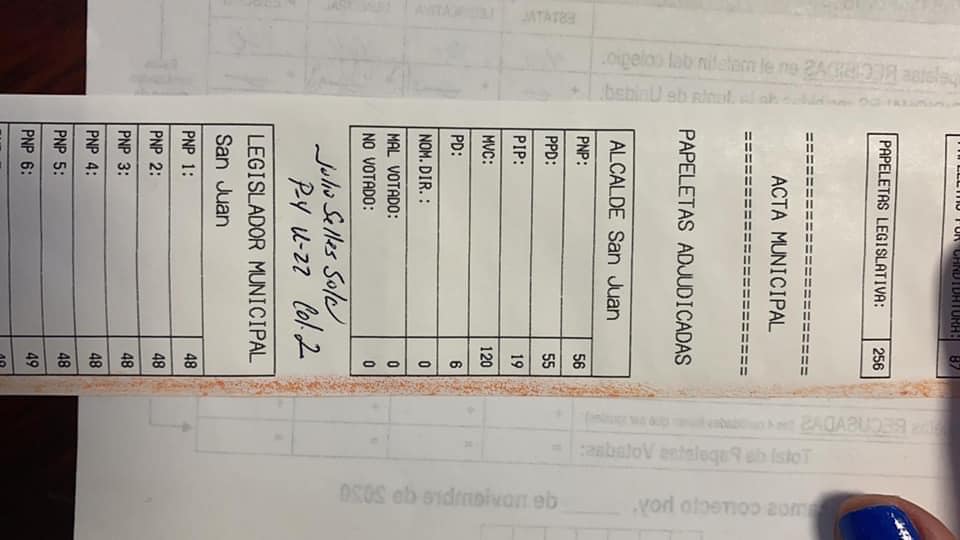 CANDIDATURA: 87
PAPELETAS LEGISLATIVA: 256
========================
ACTA MUNICIPAL
========================
PAPELETAS ADJUDICADAS
ALCALDE San Juan
PNP: 56
PPD: 55
PIP: 19
MVC: 120
PD: 6
NOM.DIR.: 0
MAL VOTADO: 0
NO VOTADO: 0
Julio Selles Sola
P-4 U-22 Col. 2
LEGISLADOR MUNICIPAL
San Juan
PNP 1: 48
PNP 2: 48
PNP 3: 48
PNP 4: 48
PNP 5: 48
PNP 6: 49
ESTATAL LEGISLATIVA
RECIBIDAS en el maletín del colegio.
de la Junta de Unidad.
RECUSADAS
Total de Papeletas Votadas: =
correcto hoy, ____ de noviembre de 2020